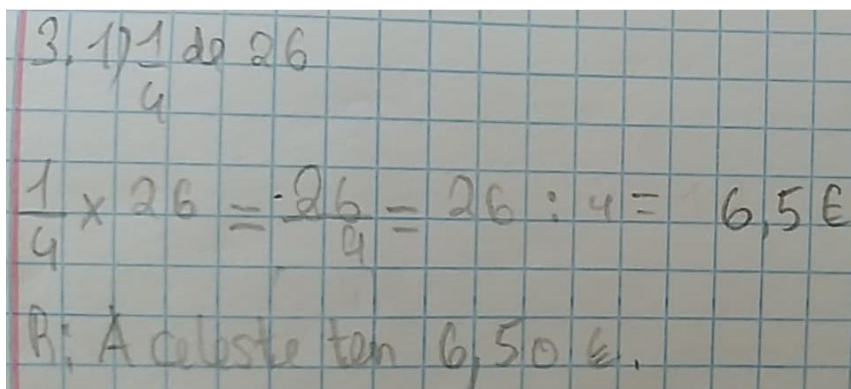 3. 1) 1/4 de 26
1/4 × 26 = 26/4 = 26 : 4 = 6,5 €
R: A Celeste tem 6,50 €.